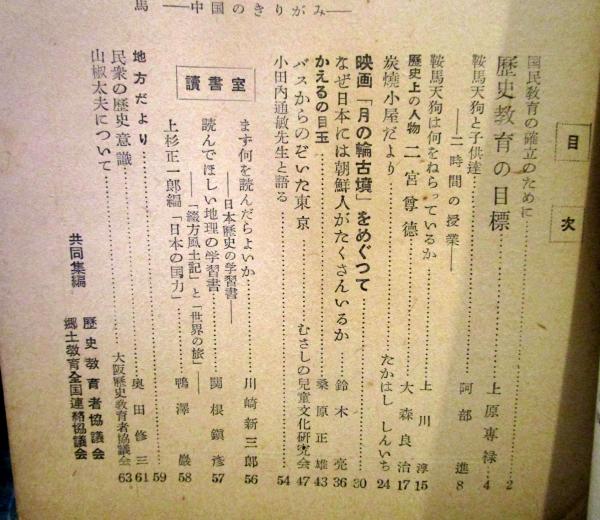 目次
国民教育の確立のために……2
歴史教育の目標……上原専禄…4
鞍馬天狗と子供達……阿部進 8
――二時間の授業――
鞍馬天狗は何をねらっているか……上川淳 15
歴史上の人物 二宮尊徳……大森良治 17
炭焼小屋だより……たかはし しんいち 24
映画「月の輪古墳」をめぐって……30
なぜ日本には朝鮮人がたくさんいるか……鈴木亮 36
かえるの目玉……桑原正雄 43
バスからのぞいた東京……むさしの児童文化研究会 47
小田内通敏先生と語る……54
讀書室
まず何を読んだらよいか……川崎新三郎 56
――日本歴史の学習書――
読んでほしい地理の学習書……関根鎮彦 57
――「綴方風土記」と「世界の旅」――
上杉正一郎編「日本の国力」……鴨澤巌 58
地方だより……59
民衆の歴史意識……奥田修三 61
山椒太夫について……大阪歴史教育者協議会 63
共同集編
歴史教育者協議会
郷土教育全国連絡協議会
馬――中国のきりがみ――